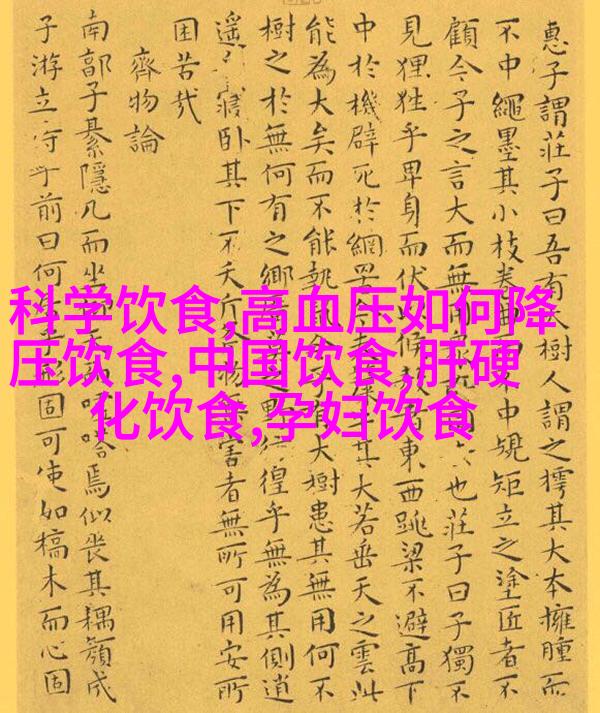 惠子謂莊子曰吾有大樹人謂之樗其大本擁腫而
不中繩墨其小枝卷曲而不中規矩立之塗匠者不
顧今子之言大而無用衆 也莊子曰子獨不
見狸狌乎卑身而伏以候敖者東西跳梁不避高下
中於機辟死於網罟今 牛其大若垂天之雲此
能為大矣而不能執鼠今子有大樹患其無用何不
樹之於無何有之鄉 之野彷徨乎無為其側逍
遙 寢卧其下不夭斤 物無害者無所可用安所
困苦哉
齊物論
南郭子綦隱几而坐 天 嗒焉似喪其耦顏成
子游立侍乎前曰何居乎形固可使如槁木而心固
科学饮食,高血压如何降
压饮食,中国饮食,肝硬
化饮食,孕妇饮食